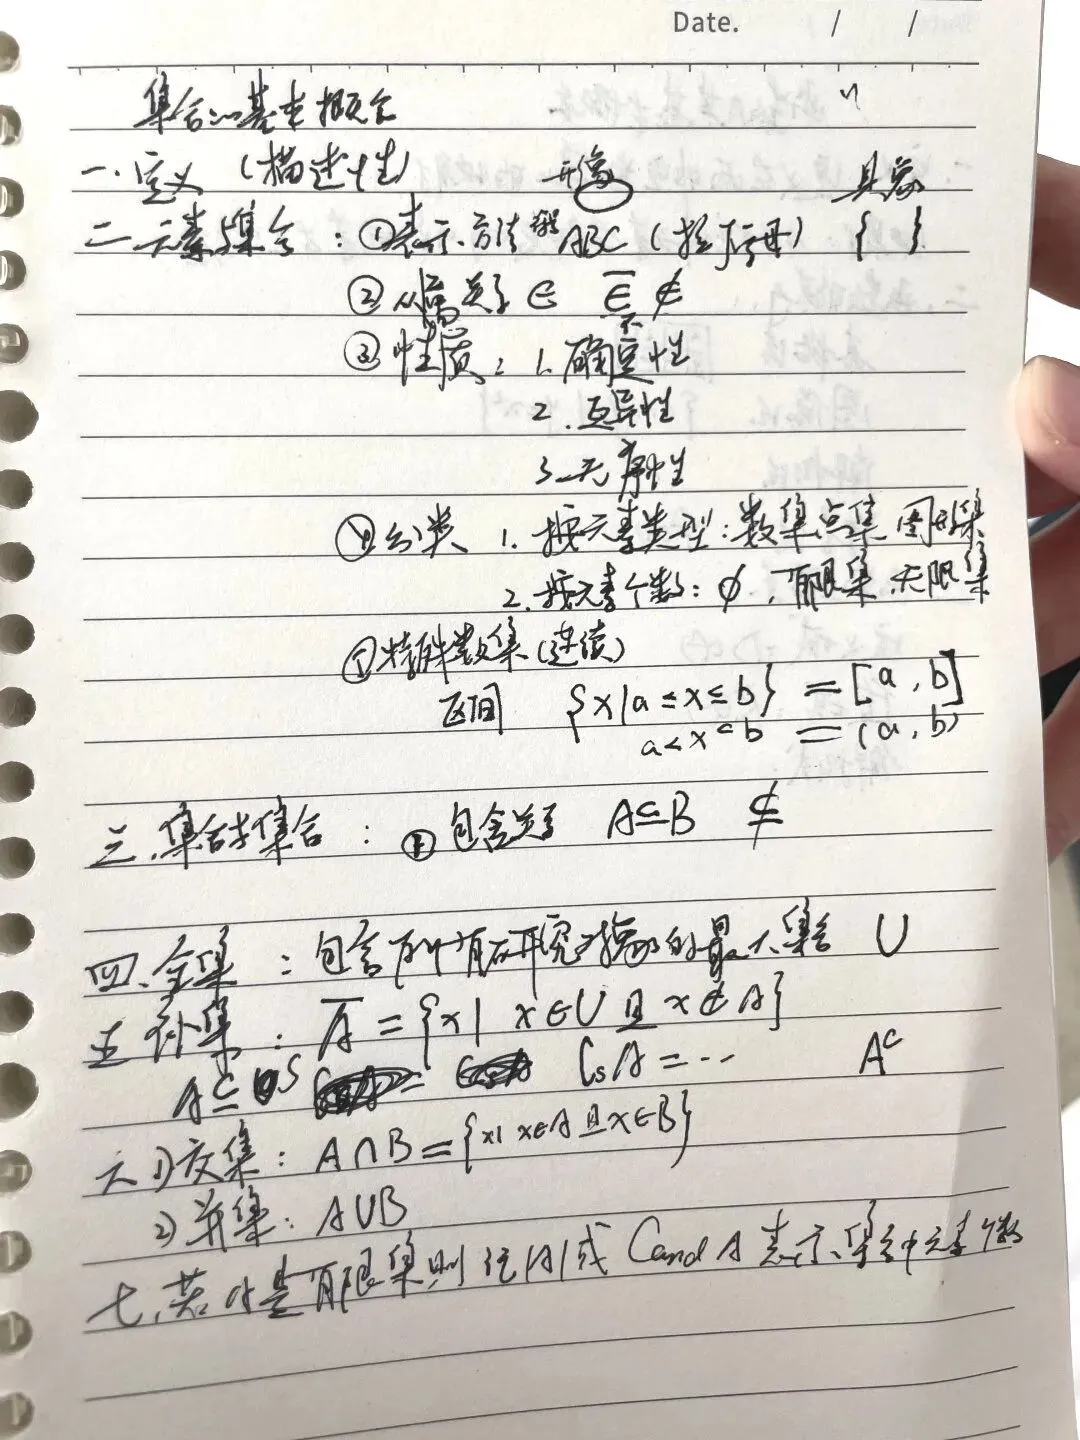 Date. / /
集合的基本概念
一.定义 (描述性) 形象 具象
二元素与集合：①表示方法 ABC (拉丁字母) { }
②从属关系 ∈ ∈̅ ∉
③性质：1.确定性
2.互异性
3.无序性
④分类 1.按元素类型：数集点集 图形集
2.按元素个数：∅，有限集,无限集
①特殊数集(连续)
区间 {x|a≤x≤b} = [a,b]
a<x<b = (a,b)
三.集合与集合：① 包含关系 A⊆B ⊈
四、全集：包含所有研究对象的最大集合 U
五 补集：A̅={x| x∈U且x∉A}
A⊆S CsA=… Aᶜ
六 1)交集：A∩B={x| x∈A且x∈B}
2)并集：A∪B
七.若A是有限集则记|A|或Cand A表示集合中元素个数